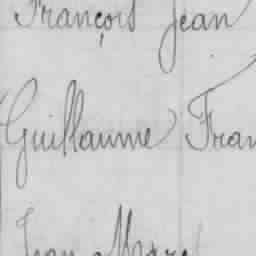 François Jean
Guillaume Fran
Jean